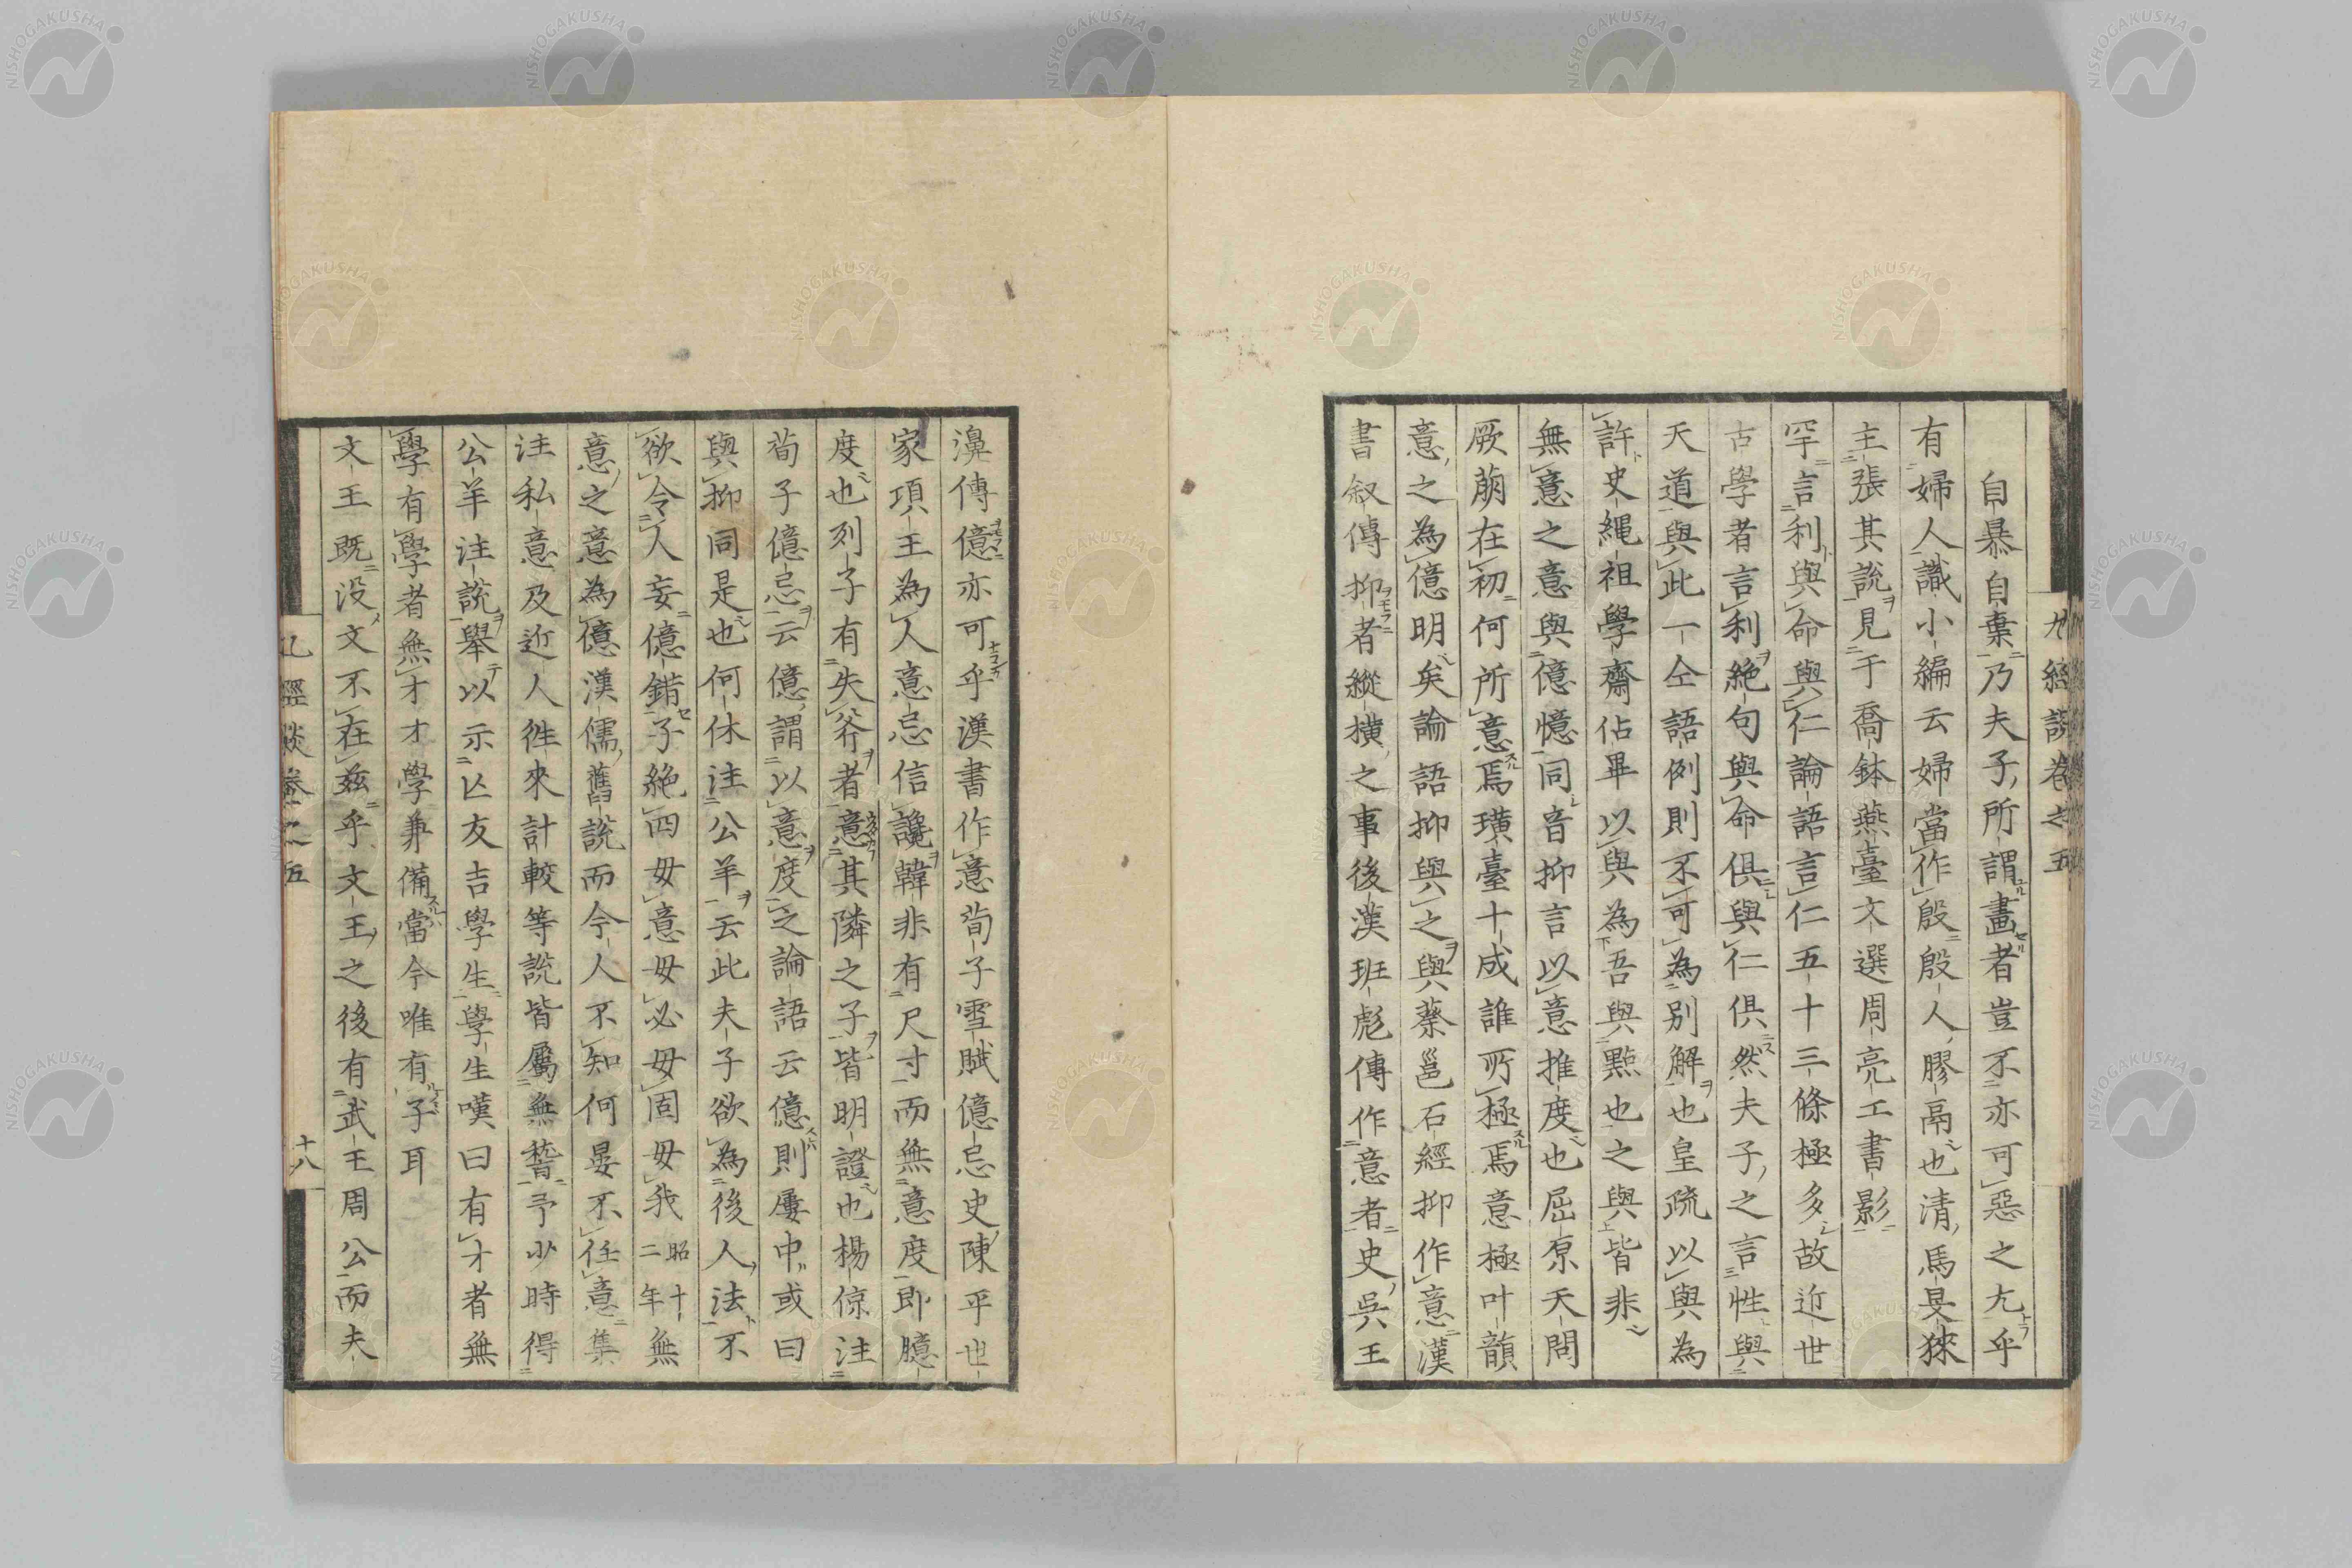 九經談卷之五
自暴自棄乃夫子所謂畫者豈不亦可惡之尤乎
有婦人識小編云婦當作殷殷人膠鬲也清馬旻徠
主張其說見于喬鉢燕臺文選周亮工書影
罕言利與命與仁論語言仁五十三條極多故近世
古學者言利絶句與命俱與仁俱然夫子之言性與
天道與此一仝語例則不可為別解也皇疏以與為
許史繩祖學齋佔畢以與為吾與點也之與皆非
無意之意與億憶同音抑言以意推度也屈原天問
厥萠在初何所意焉璜臺十成誰所極焉意極叶韻
意之為億明矣論語抑與之與蔡邕石經抑作意漢
書叙傳抑者縱横之事後漢班彪傳作意者史吳王
濞傳億亦可乎漢書作意荀子雪賦億忌史陳平世
家項王為人意忌信讒韓非有尺寸而無意度即臆
度也列子有失斧者意其隣之子皆明證也楊倞注
荀子億忌云億謂以意度之論語云億則屢中或曰
與抑同是也何休注公羊云此夫子欲為後人法不
欲令人妄億錯子絶四毋意毋必毋固毋我昭十二年無
意之意為億漢儒舊說而今人不知何晏不任意集
注私意及近人徃來計較等說皆屬無稽予少時得
公羊注說舉以示亡友吉學生學生嘆曰有才者無
學有學者無才才學兼備當今唯有子耳
文王既没文不在茲乎文王之後有武王周公而夫
九經談卷之五
十八
NISHOGAKUSHA